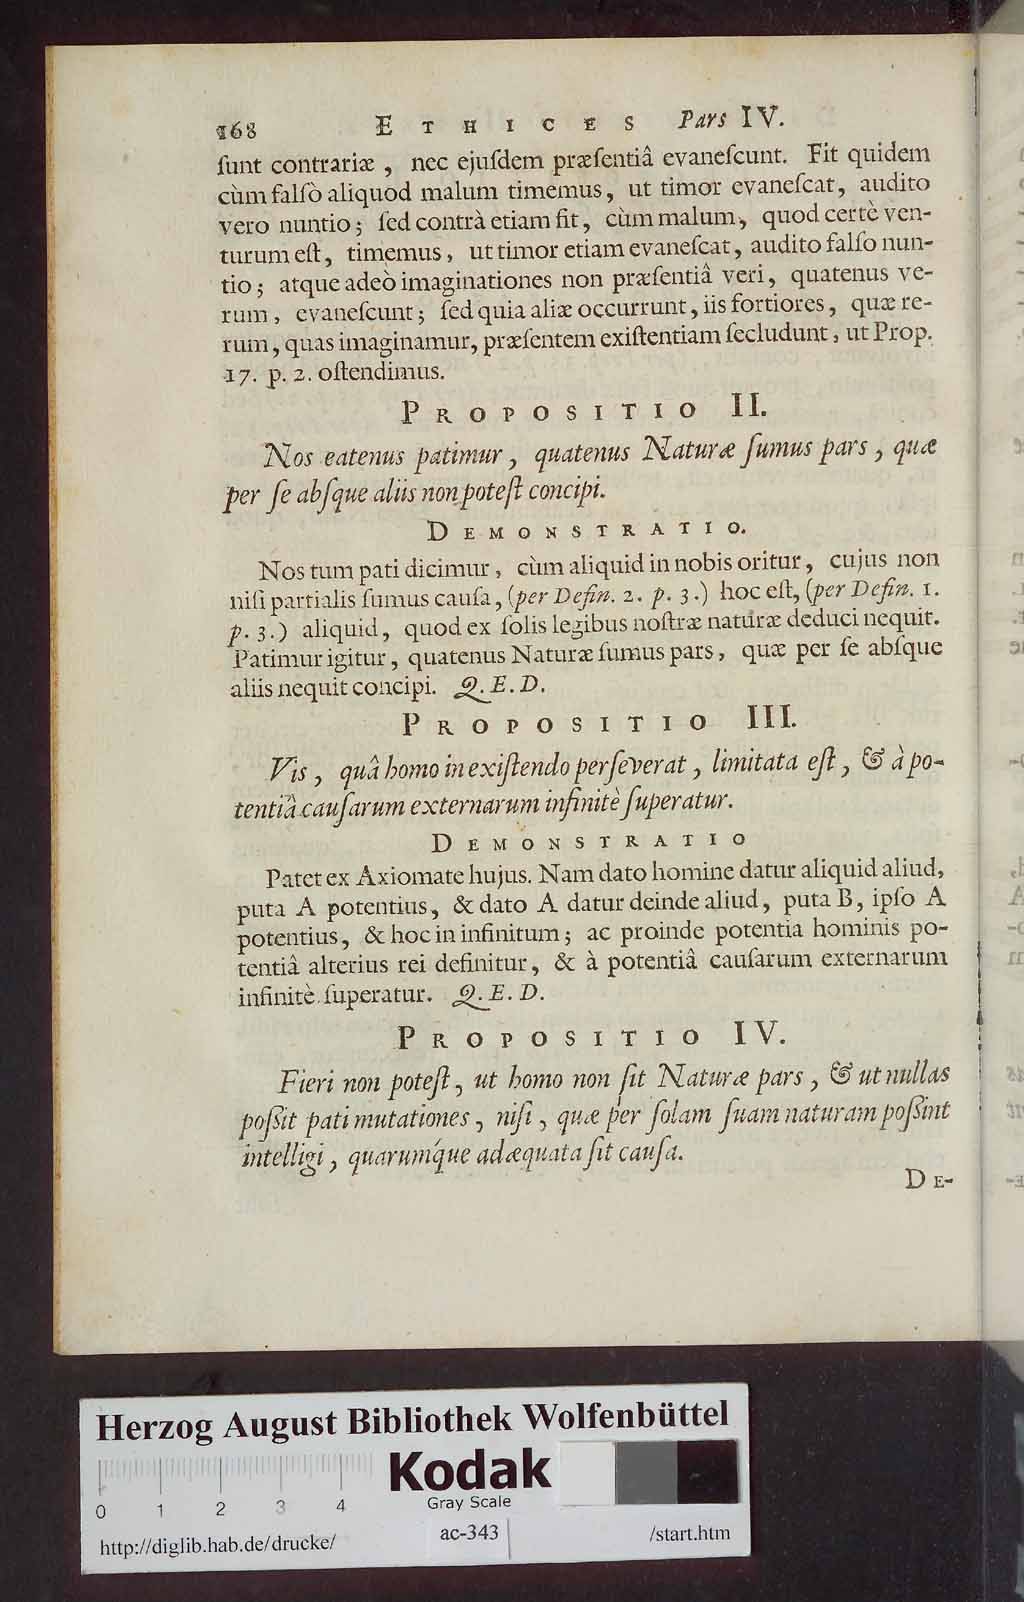 168 ETHICES Pars IV.
ſunt contrariæ, nec ejuſdem præſentiâ evaneſcunt. Fit quidem
cùm falſò aliquod malum timemus, ut timor evaneſcat, audito
vero nuntio; ſed contrà etiam fit, cùm malum, quod certè ven-
turum eſt, timemus, ut timor etiam evaneſcat, audito falſo nun-
tio; atque adeò imaginationes non præſentiâ veri, quatenus ve-
rum, evaneſcunt; ſed quia aliæ occurrunt, iis fortiores, quæ re-
rum, quas imaginamur, præſentem exiſtentiam ſecludunt, ut Prop.
17. p. 2. oſtendimus.
PROPOSITIO II.
Nos eatenus patimur, quatenus Naturæ ſumus pars, quæ
per ſe abſque aliis non poteſt concipi.
DEMONSTRATIO.
Nos tum pati dicimur, cùm aliquid in nobis oritur, cujus non
niſi partialis ſumus cauſa, (per Defin. 2. p. 3.) hoc eſt, (per Defin. 1.
p. 3.) aliquid, quod ex ſolis legibus noſtræ naturæ deduci nequit.
Patimur igitur, quatenus Naturæ ſumus pars, quæ per ſe abſque
aliis nequit concipi. Q. E. D.
PROPOSITIO III.
Vis, quâ homo in exiſtendo perſeverat, limitata eſt, & à po-
tentiâ cauſarum externarum infinitè ſuperatur.
DEMONSTRATIO
Patet ex Axiomate hujus. Nam dato homine datur aliquid aliud,
puta A potentius, & dato A datur deinde aliud, puta B, ipſo A
potentius, & hoc in infinitum; ac proinde potentia hominis po-
tentiâ alterius rei definitur, & à potentiâ cauſarum externarum
infinitè ſuperatur. Q. E. D.
PROPOSITIO IV.
Fieri non poteſt, ut homo non ſit Naturæ pars, & ut nullas
poſſit pati mutationes, niſi, quæ per ſolam ſuam naturam poſſint
intelligi, quarumq́ue adæquata ſit cauſa.
DE-
Herzog August Bibliothek Wolfenbüttel
Kodak
Gray Scale
0 1 2 3 4
http://diglib.hab.de/drucke/ ac-343 /start.htm